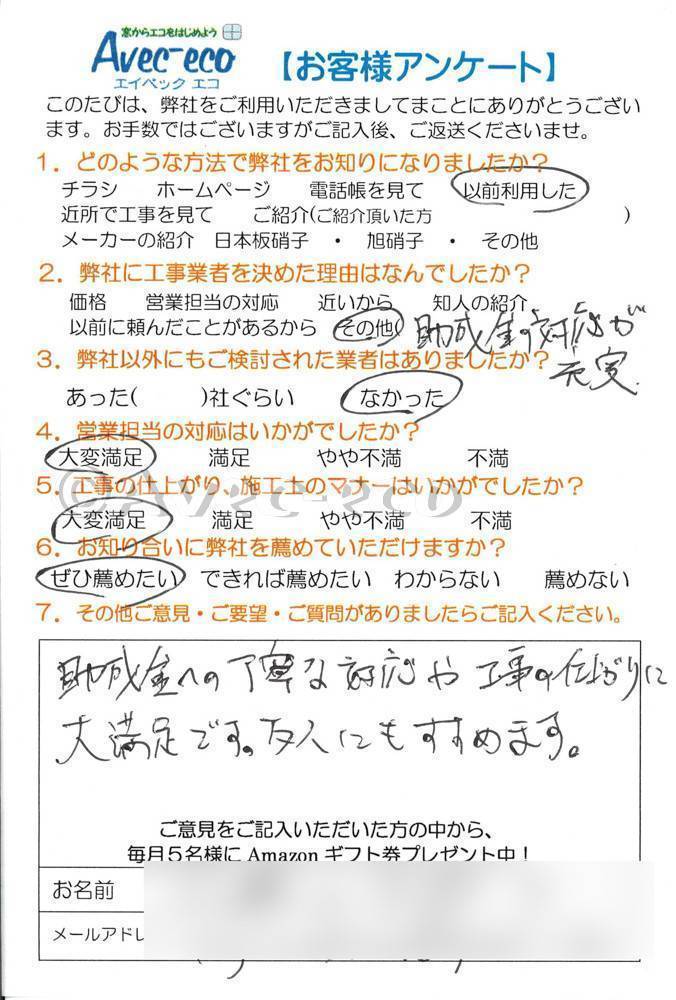 窓からエコをはじめよう
Avec-eco
エイベック エコ
【お客様アンケート】
このたびは、弊社をご利用いただきましてまことにありがとうござい
ます。お手数ではございますがご記入後、ご返送くださいませ。
1．どのような方法で弊社をお知りになりましたか？
チラシ ホームページ 電話帳を見て 以前利用した
近所で工事を見て ご紹介(ご紹介頂いた方 )
メーカーの紹介 日本板硝子 ・ 旭硝子 ・ その他
2．弊社に工事業者を決めた理由はなんでしたか？
価格 営業担当の対応 近いから 知人の紹介
以前に頼んだことがあるから その他( 助成金の対応が
充実
3．弊社以外にもご検討された業者はありましたか？
あった( )社ぐらい なかった
4．営業担当の対応はいかがでしたか？
大変満足 満足 やや不満 不満
5．工事の仕上がり、施工士のマナーはいかがでしたか？
©Avec-eco
大変満足 満足 やや不満 不満
6．お知り合いに弊社を薦めていただけますか？
ぜひ薦めたい できれば薦めたい わからない 薦めない
7．その他ご意見・ご要望・ご質問がありましたらご記入ください。
助成金への丁寧な対応や工事の仕上がりに
大満足です。友人にもすすめます。
ご意見をご記入いただいた方の中から、
毎月５名様に Amazon ギフト券プレゼント中！
お名前
メールアドレ